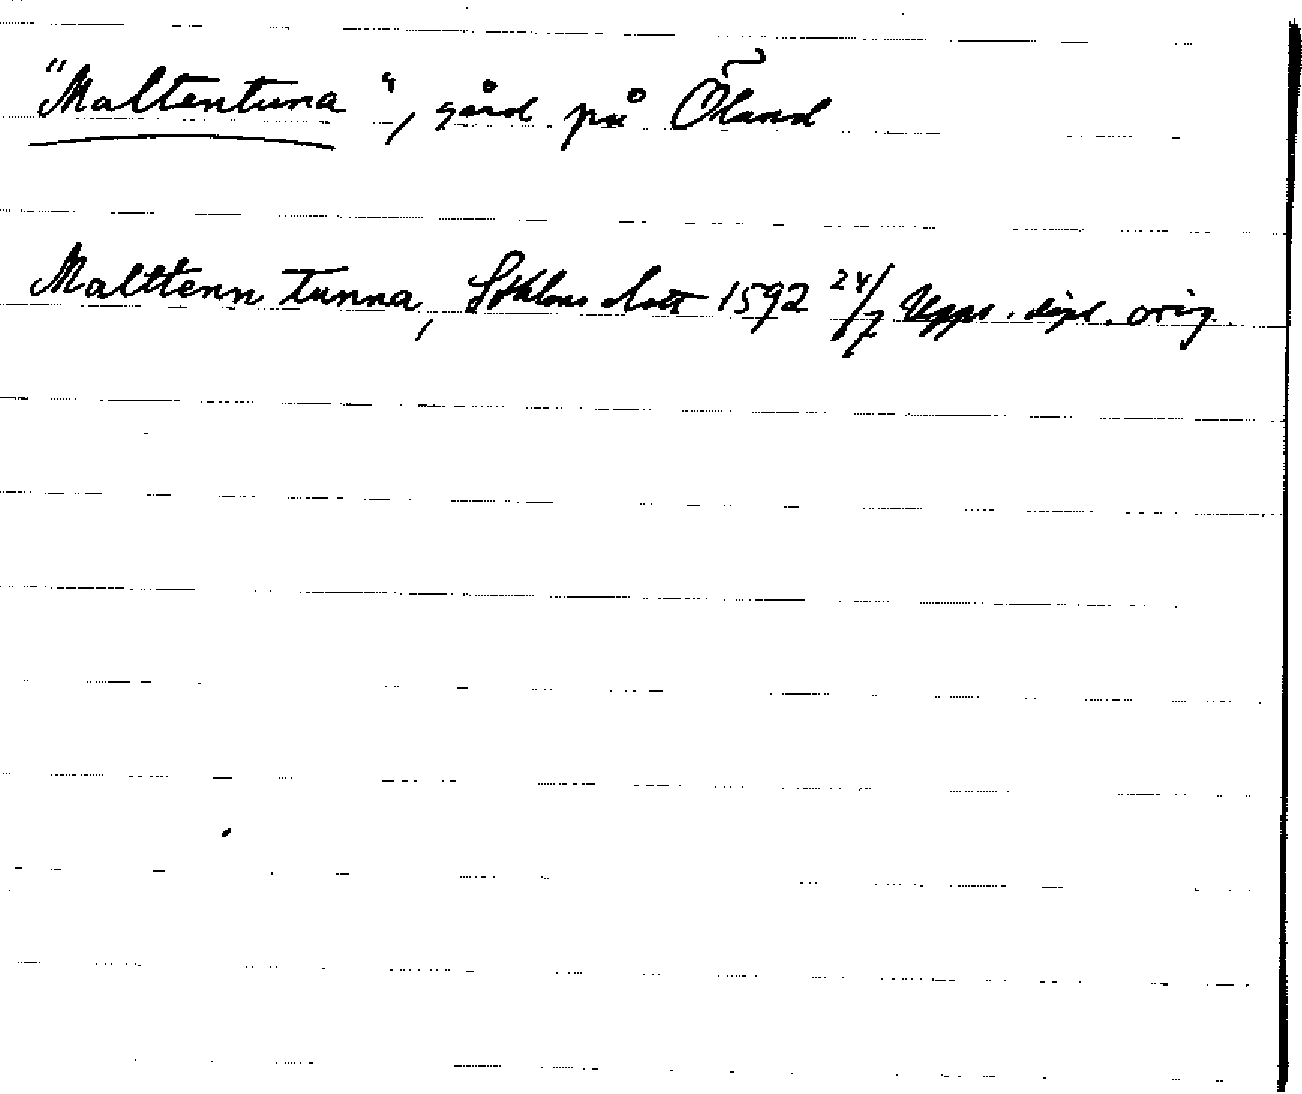 "Maltentuna", gård på Öland
Malttenn tunna, Sthlms slott 1592 24/7 Upps. dipl. orig.